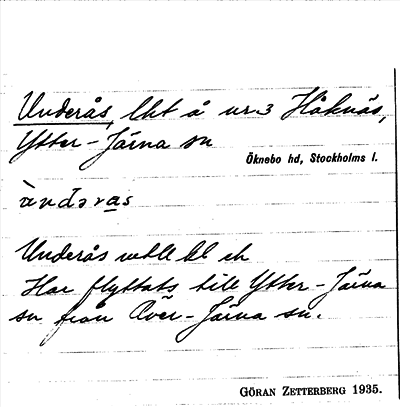 Underås, lht å nr 3 Håknäs,
Ytter-Järna sn
Öknebo hd, Stockholms l.
ùndəra̲s
Underås
Har flyttats till Ytter-Järna
sn från Över-Järna sn.
GÖRAN ZETTERBERG 1935.